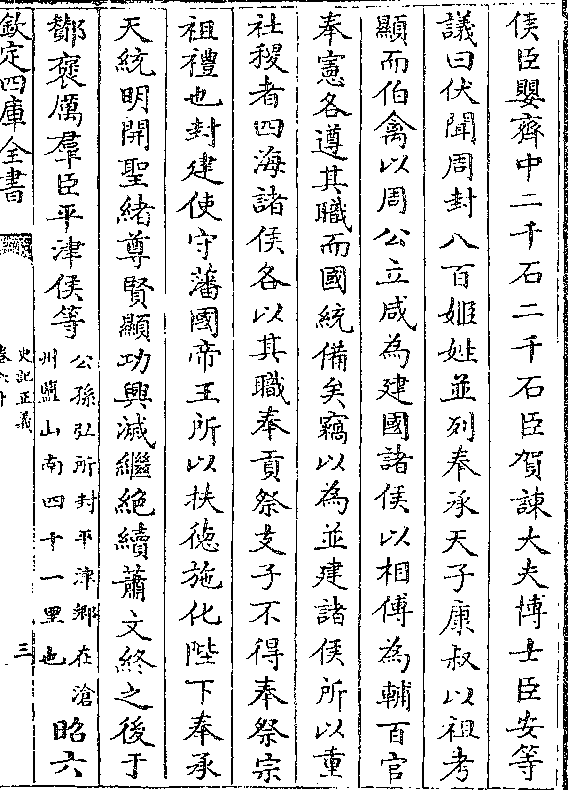 侯臣嬰齊中二千石二千石臣賀諫大夫博士臣安等
議曰伏聞周封八百姬姓並列奉承天子康叔以祖考
顯而伯禽以周公立咸為建國諸侯以相傅為輔百官
奉憲各遵其職而國統備矣竊以為並建諸侯所以重
社稷者四海諸侯各以其職奉貢祭支子不得奉祭宗
祖禮也封建使守藩國帝王所以扶徳施化陛下奉承
天統明開聖緒尊賢顯功興滅繼絶續蕭文終之後于
酇褒厲羣臣平津侯等
公孫弘所封平津鄉在滄
州鹽山南四十一里也
昭六
欽定四庫全書
史記正義
卷六十
三